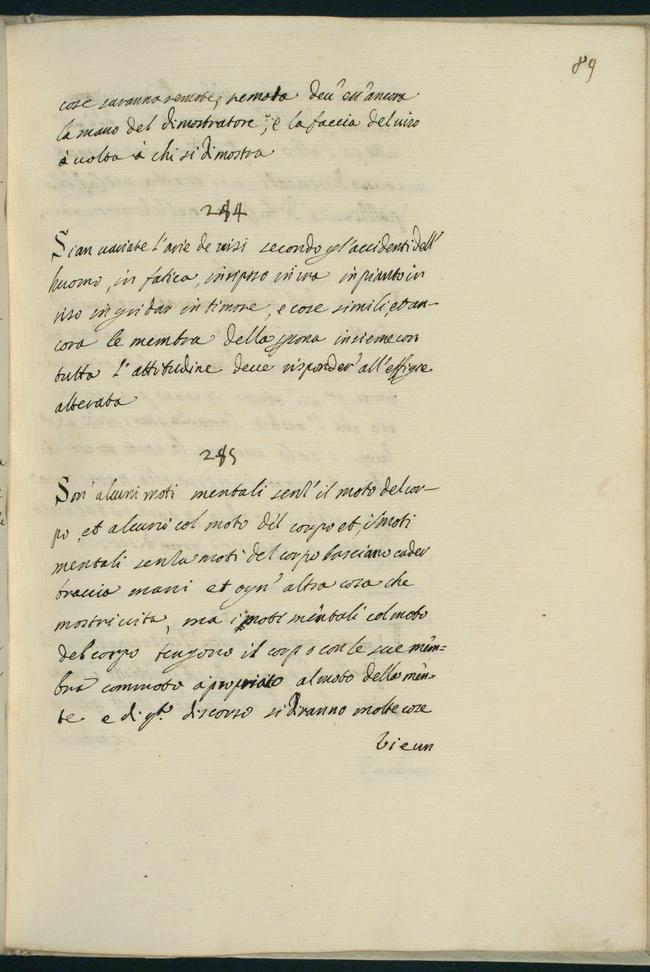 89
cose saranno remote, remota deu' ess' ancora
la mano del dimostratore, e la faccia del viso
à volta à chi si dimostra
284
Sian variate l'arie de visi secondo gl'accidenti dell'
huomo, in fatica, in riposo in ira in pianto in
riso in gridar in timore, e cose simili, et an-
cora le membra della psona insieme con
tutta l'attitudine deue risponder' all'effigie
alterata
285
Son' alcuni moti mentali senz' il moto del cor-
po, et alcuni col moto del corpo et, i moti
mentali senza moti del corpo lasciano cader
braccia mani et ogn' altra cosa che
mostri vita, ma i moti mentali col moto
del corpo tengono il corpo con le sue mem-
bra commoto apropriato al moto della men-
te e di qto. discorso si diranno molte cose
Vi e un